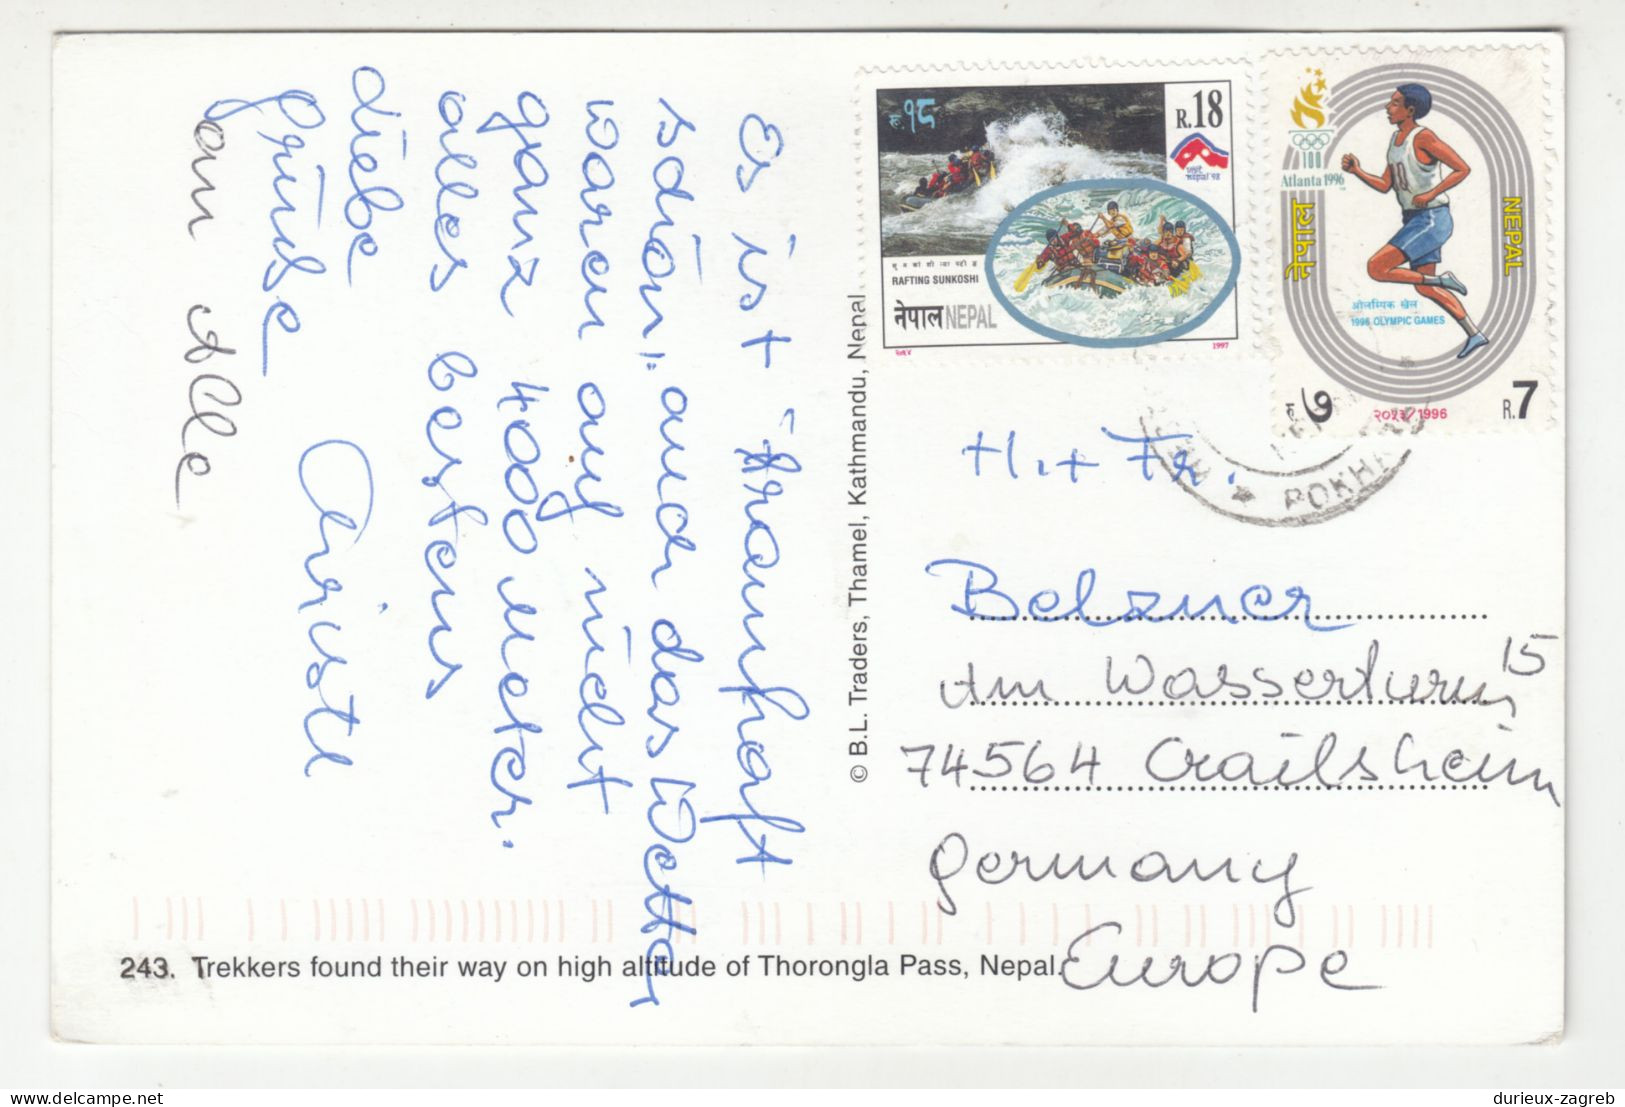 Es ist "traumhaft
schön" auch das Wetter
waren auf nicht
ganz 4000 Meter.
alles bestens
Liebe
Grüße Christl
an Alle
© B.L. Traders, Thamel, Kathmandu, Nepal
243. Trekkers found their way on high altitude of Thorongla Pass, Nepal.
रु. १८
R.18
visit nepal '98
RAFTING SUNKOSHI
नेपाल NEPAL
२०५४
1997
100
Atlanta 1996
नेपाल
NEPAL
ओलम्पिक खेल
1996 OLYMPIC GAMES
रु. ७
२०५३/1996
R.7
POKHARA
H. + Fr.
Belzner
Am Wasserturm 15
74564 Crailsheim
Germany
Europe
www.delcampe.net
durieux-zagreb